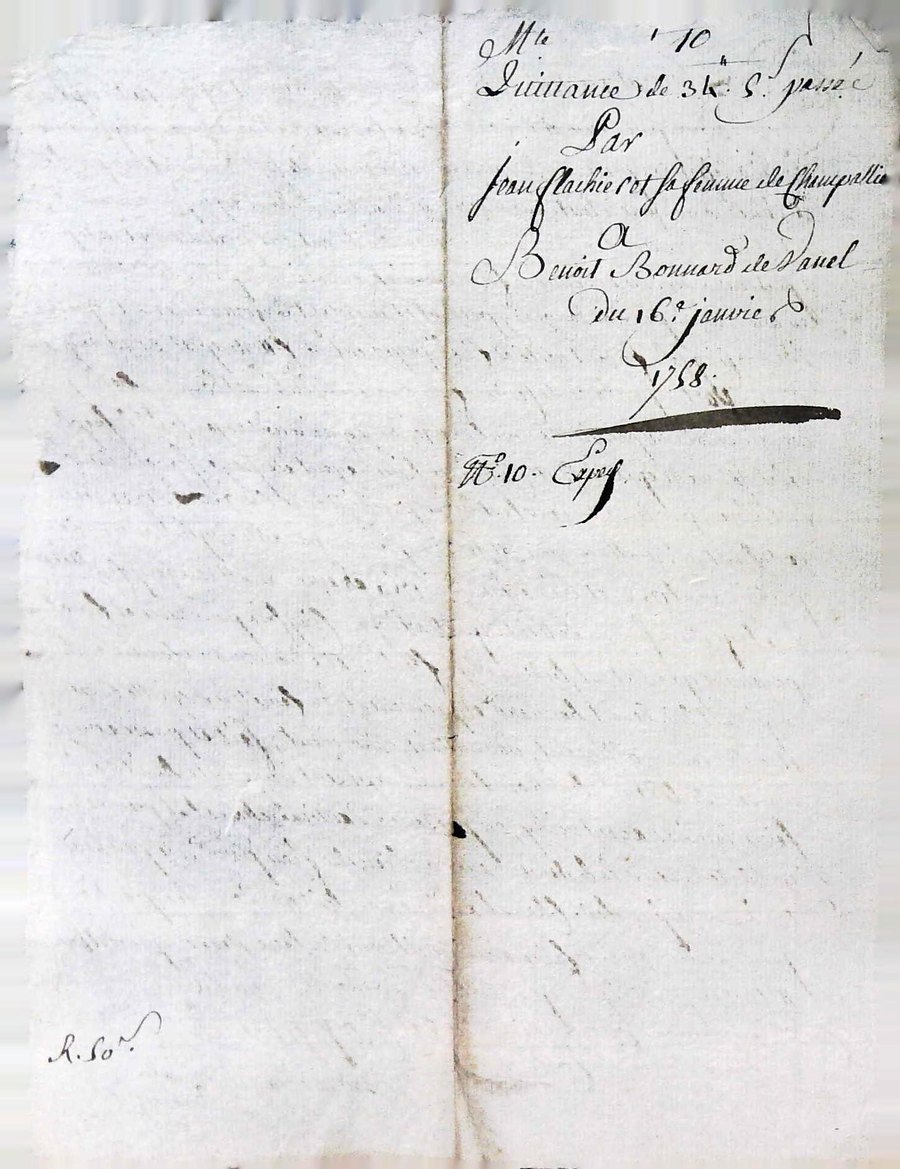 Mte 10
Quittance de 3 5s passé
Par
jean flachier et sa femme de Champallie
A
Benoit Bonnard de Vanel
du 16e janvier
1758.
No. 10. Exped
R. 50s.